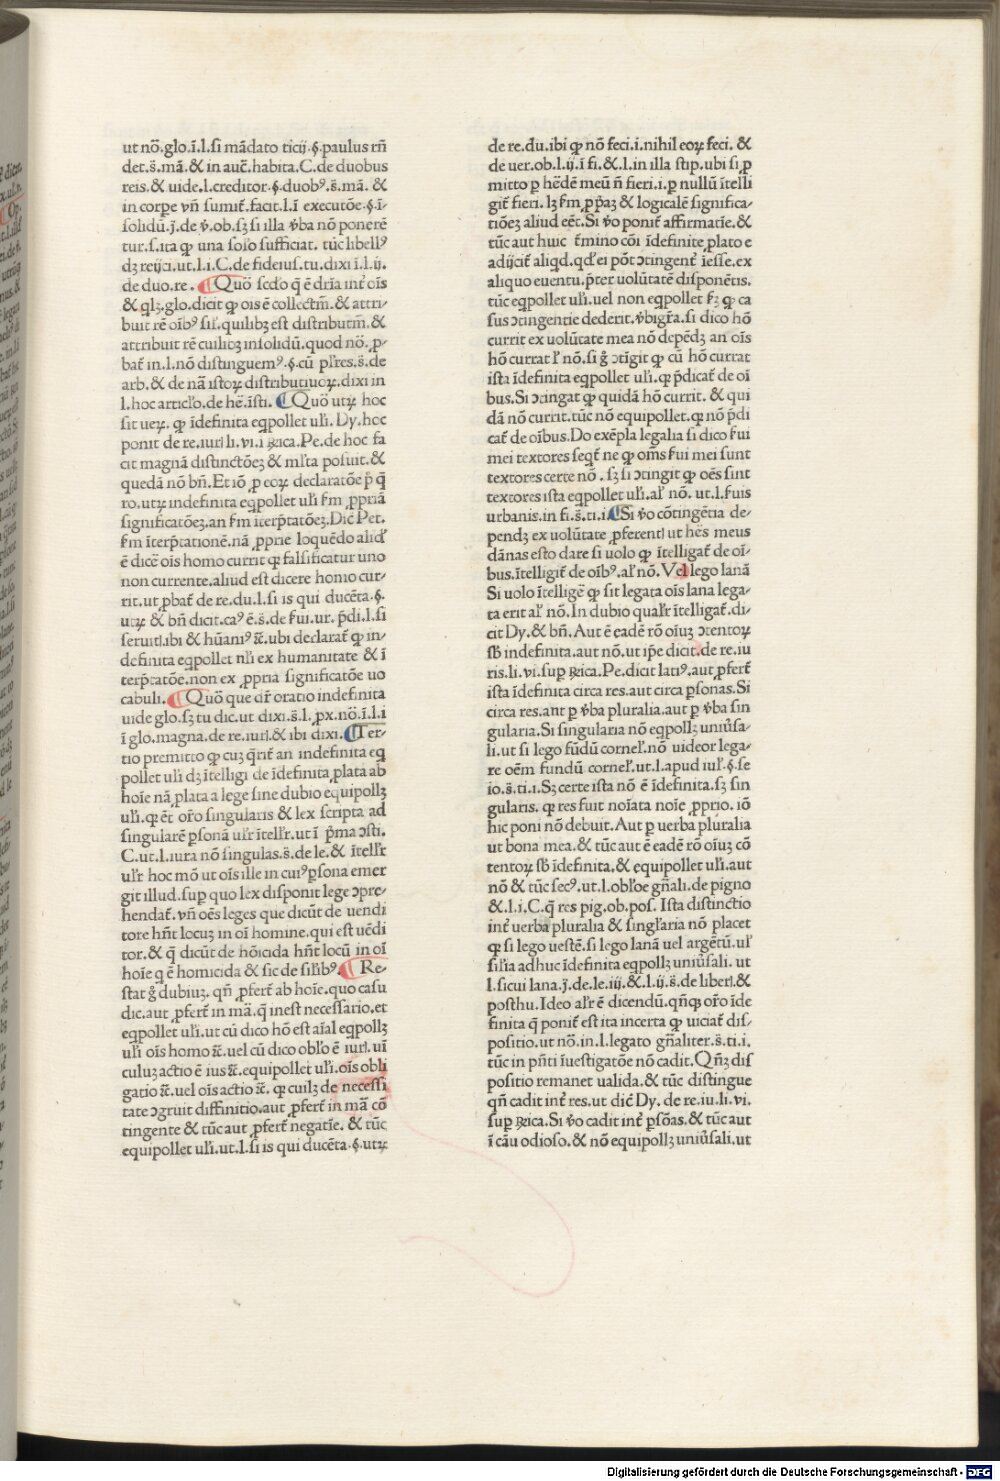 ut nõ.glo.ĩ.l.si mãdato ticij.§.paulus rñ
det.s̃.mã.& in auc̃.habita.C.de duobus
reis.& uide.l.creditor.§.duobꝰ.s̃.mã.&
in corpe vñ sumit̃.facit.l.ĩ executõe.§.ĩ-
solidũ.j̃.de ṽ.ob.sꝫ si illa ṽba nõ ponerẽ
tur.s.ita ꝙ una solo sufficiat. tũc libellꝰ
dꝫ reijci.ut.l.i.C.de fideius.tu.dixi ĩ.l.ij.
de duo.re. Quõ scdo q̃ ẽ dr̃ia int̃ oĩs
& qlꝫ.glo.dicit ꝙ ois ẽ collectm̃.& attri-
buit rẽ oĩbꝰ sil̃.quilibꝫ est distributm̃.&
attribuit rẽ cuilibꝫ insolidũ.quod nõ.ꝓ-
bat̃ in.l.nõ distinguemꝰ.§.cũ pl̃res.s̃.de
arb.& de nã istoꝝ distributiuoꝝ.dixi in
l.hoc articl̃o.de hẽ.ĩsti. Quõ utꝝ hoc
sit ueꝝ. ꝙ ĩdefinita eqpollet ul̃i. Dy.hoc
ponit de re.iur̃l li.vi.i ꝶica.Pe.de hoc fa
cit magnã distinctõeꝫ & ml̃ta posuit.&
quedã nõ bñ. Et iõ ꝓ eoꝝ declaratõe p̃ q̃
ro.utꝝ indefinita eqpollet ul̃i ẜm ꝓpriã
significatõeꝫ.an ẜm ĩterp̃tatõeꝫ.Dic̃ Pet.
ẜm ĩterp̃tationẽ.nã ꝓprie loquẽdo aliđ
ẽ dicẽ oĩs homo currit ꝙ falsificatur uno
non currente.aliud est dicere homo cur-
rit.ut ꝓbat̃ de re.du.l.si is qui ducẽta.§.
utꝝ & bñ dicit.caꝰ ẽ.s̃.de ẜui.ur. p̃di.l.si
seruitl.ibi & hũaniꝰ &c̃.ubi declarat̃ ꝙ in-
definita eqpollet nl̃i ex humanitate & ĩ
terp̃tatõe.non ex ꝓpria significatõe uo
cabuli. Quõ que dr̃ oratio indefinita
uide glo.sꝫ tu dic.ut dixi.s̃.l. ꝓx.nõ.ĩ.l.i
ĩ glo.magna.de re.iur̃l.& ibi dixi. Ter-
tio premitto ꝙ cuꝫ q̃rit̃ an indefinita eq
pollet ul̃i dꝫ ĩtelligi de ĩdefinita ꝓlata ab
hoĩe nã ꝓlata a lege sine dubio equipollꝫ
ul̃i.ꝙ ẽt or̃o singularis & lex scripta ad
singularẽ ꝑsonã ul̃r ĩtell̃r.ut ĩ p̃ma ꝯsti.
C.ut.l.iura nõ singulas.s̃.de le.& ĩtell̃r
ul̃r hoc mõ ut oĩs ille in cuiꝰ ꝑsona emer
git illud.sup quo lex disponit lege ꝯpre-
hendat̃. vñ oẽs leges que dicũt de uendi
tore hñt locuꝫ in oĩ homine.qui est uẽdi
tor.& q̃ dicũt de hõicida hñt locũ in oĩ
hoĩe q ẽ homicida & sic de sil̃ibꝰ. Re-
stat g̃ dubiuꝫ. qñ ꝓfert̃ ab hoĩe.quo casu
dic.aut ꝓfert̃ in mã.q̃ inest necessario.et
eqpollet ul̃i.ut cũ dico hõ est aĩal eqpollꝫ
ul̃i oĩs homo &c̃.uel cũ dico obl̃o ẽ iur̃l.uĩ
culuꝫ actio ẽ ius &c̃.equipollet ul̃i.oĩs obli
gatio &c̃.uel oĩs actio &c̃. ꝙ cuilꝫ de necessi
tate ꝯgruit diffinitio.aut ꝓfert̃ in mã cõ
tingente & tũc aut ꝓfert̃ negatĩe. & tũc
equipollet ul̃i.ut.l.si is qui ducẽta.§.utꝝ
de re.du.ibi ꝙ nõ feci.i.nihil eoꝝ feci. &
de uer.ob.l.ij.ĩ fi.& l.in illa stip.ubi si ꝓ
mitto ꝑ hẽdẽ meũ ñ fieri.i.ꝑ nullũ ĩtelli
git̃ fieri. lꝫ ẜm ꝓpaꝫ & logicalẽ significa-
tiõeꝫ aliud eẽt.Si ṽo ponit̃ affirmatĩe.&
tũc aut huic t̃mino cõi ĩdefinite ꝓlato e
adijcit̃ aliqd.qđ ei põt ꝯtingent̃ iẽsse.ex
aliquo euentu.p̃ter uolũtatẽ disponẽtis.
tũc eqpollet ul̃i.uel non eqpollet ẜꝫ ꝙ ca
sus ꝯtingentie dederit.ṽbigr̃a.si dico hõ
currit ex uolũtate mea nõ depẽdꝫ an oĩs
hõ currat l̃ nõ.si g̃ ꝯtĩgit ꝙ cũ hõ currat
ista ĩdefinita eqpollet ul̃i.ꝙ p̃dicat̃ de oĩ
bus.Si ꝯtingat ꝙ quidã hõ currit. & qui
dã nõ currit.tũc nõ equipollet.ꝙ nõ p̃di
cat̃ de oĩbus.Do exẽpla legalia si dico ẜui
mei textores seqt̃ ne ꝙ om̃s ẜui mei sunt
textores certe nõ. sꝫ si ꝯtingit ꝙ oẽs sint
textores ista eqpollet ul̃i.al̃ nõ. ut.l.ẜuis
urbanis.in fi.s̃.ti.i. Si ṽo cõtingẽtia de-
pendꝫ ex uolũtate ꝓferentl ut hẽs meus
dãnas esto dare si uolo ꝙ ĩtelligat̃ de oĩ-
bus.ĩtelligit̃ de oĩbꝰ.al̃ nõ. Vel lego lanã
Si uolo ĩtelligẽ ꝙ sit legata oĩs lana lega-
ta erit al̃ nõ. In dubio qual̃r ĩtelligat̃.di-
cit Dy.& bñ. Aut ẽ eadẽ rõ oĩuꝫ ꝯtentoꝝ
sb̃ indefinita.aut nõ.ut ip̃e dicit.de re.iu
ris.li.vi.sup ꝶica.Pe.dicit latiꝰ.aut ꝓfert̃
ista ĩdefinita circa res.aut circa ꝑsonas.Si
circa res.ant ꝑ ṽba pluralia.aut ꝑ ṽba sin
gularia.Si singularia nõ eqpollꝫ uniũsa-
li.ut si lego fũdũ cornel̃.nõ uideor lega-
re oẽm fundũ cornel̃.ut.l.apud iul̃.§.se
io.s̃.ti.i.Sꝫ certe ista nõ ẽ ĩdefinita.sꝫ sin
gularis. ꝙ res fuit noĩata noĩe ꝓprio. iõ
hic poni nõ debuit. Aut ꝑ uerba pluralia
ut bona mea.& tũc aut ẽ eadẽ rõ oĩuꝫ cõ
tentoꝝ sb̃ ĩdefinita.& equipollet ul̃i.aut
nõ & tũc secꝰ.ut.l.obl̃oe gñali.de pigno
& .l.i.C.q̃ res pig.ob.pos. Ista distinctio
int̃ uerba pluralia & singl̃aria nõ placet
ꝙ si lego uestẽ.si lego lanã uel argẽtũ.ul̃
sil̃ia adhuc ĩdefinita eqpollꝫ uniũsali. ut
l.sicui lana.j̃.de le.iij.& .l.ij.s̃.de liberl.&
posthu. Ideo al̃r ẽ dicendũ.qñqꝫ or̃o ĩde
finita q̃ ponit̃ est ita incerta ꝙ uiciat̃ dis-
positio.ut nõ.in.l.legato gñaliter.s̃.ti.i.
tũc in pñti ĩuestigatõe nõ cadit. Qñꝫ dis
positio remanet ualida.& tũc distingue
qñ cadit int̃ res.ut dic̃ Dy. de re.iu.li.vi.
sup ꝶica.Si ṽo cadit int̃ ꝑsõas.& tũc aut
ĩ cãu odioso.& nõ equipollꝫ uniũsali.ut
Digitalisierung gefördert durch die Deutsche Forschungsgemeinschaft - DFG